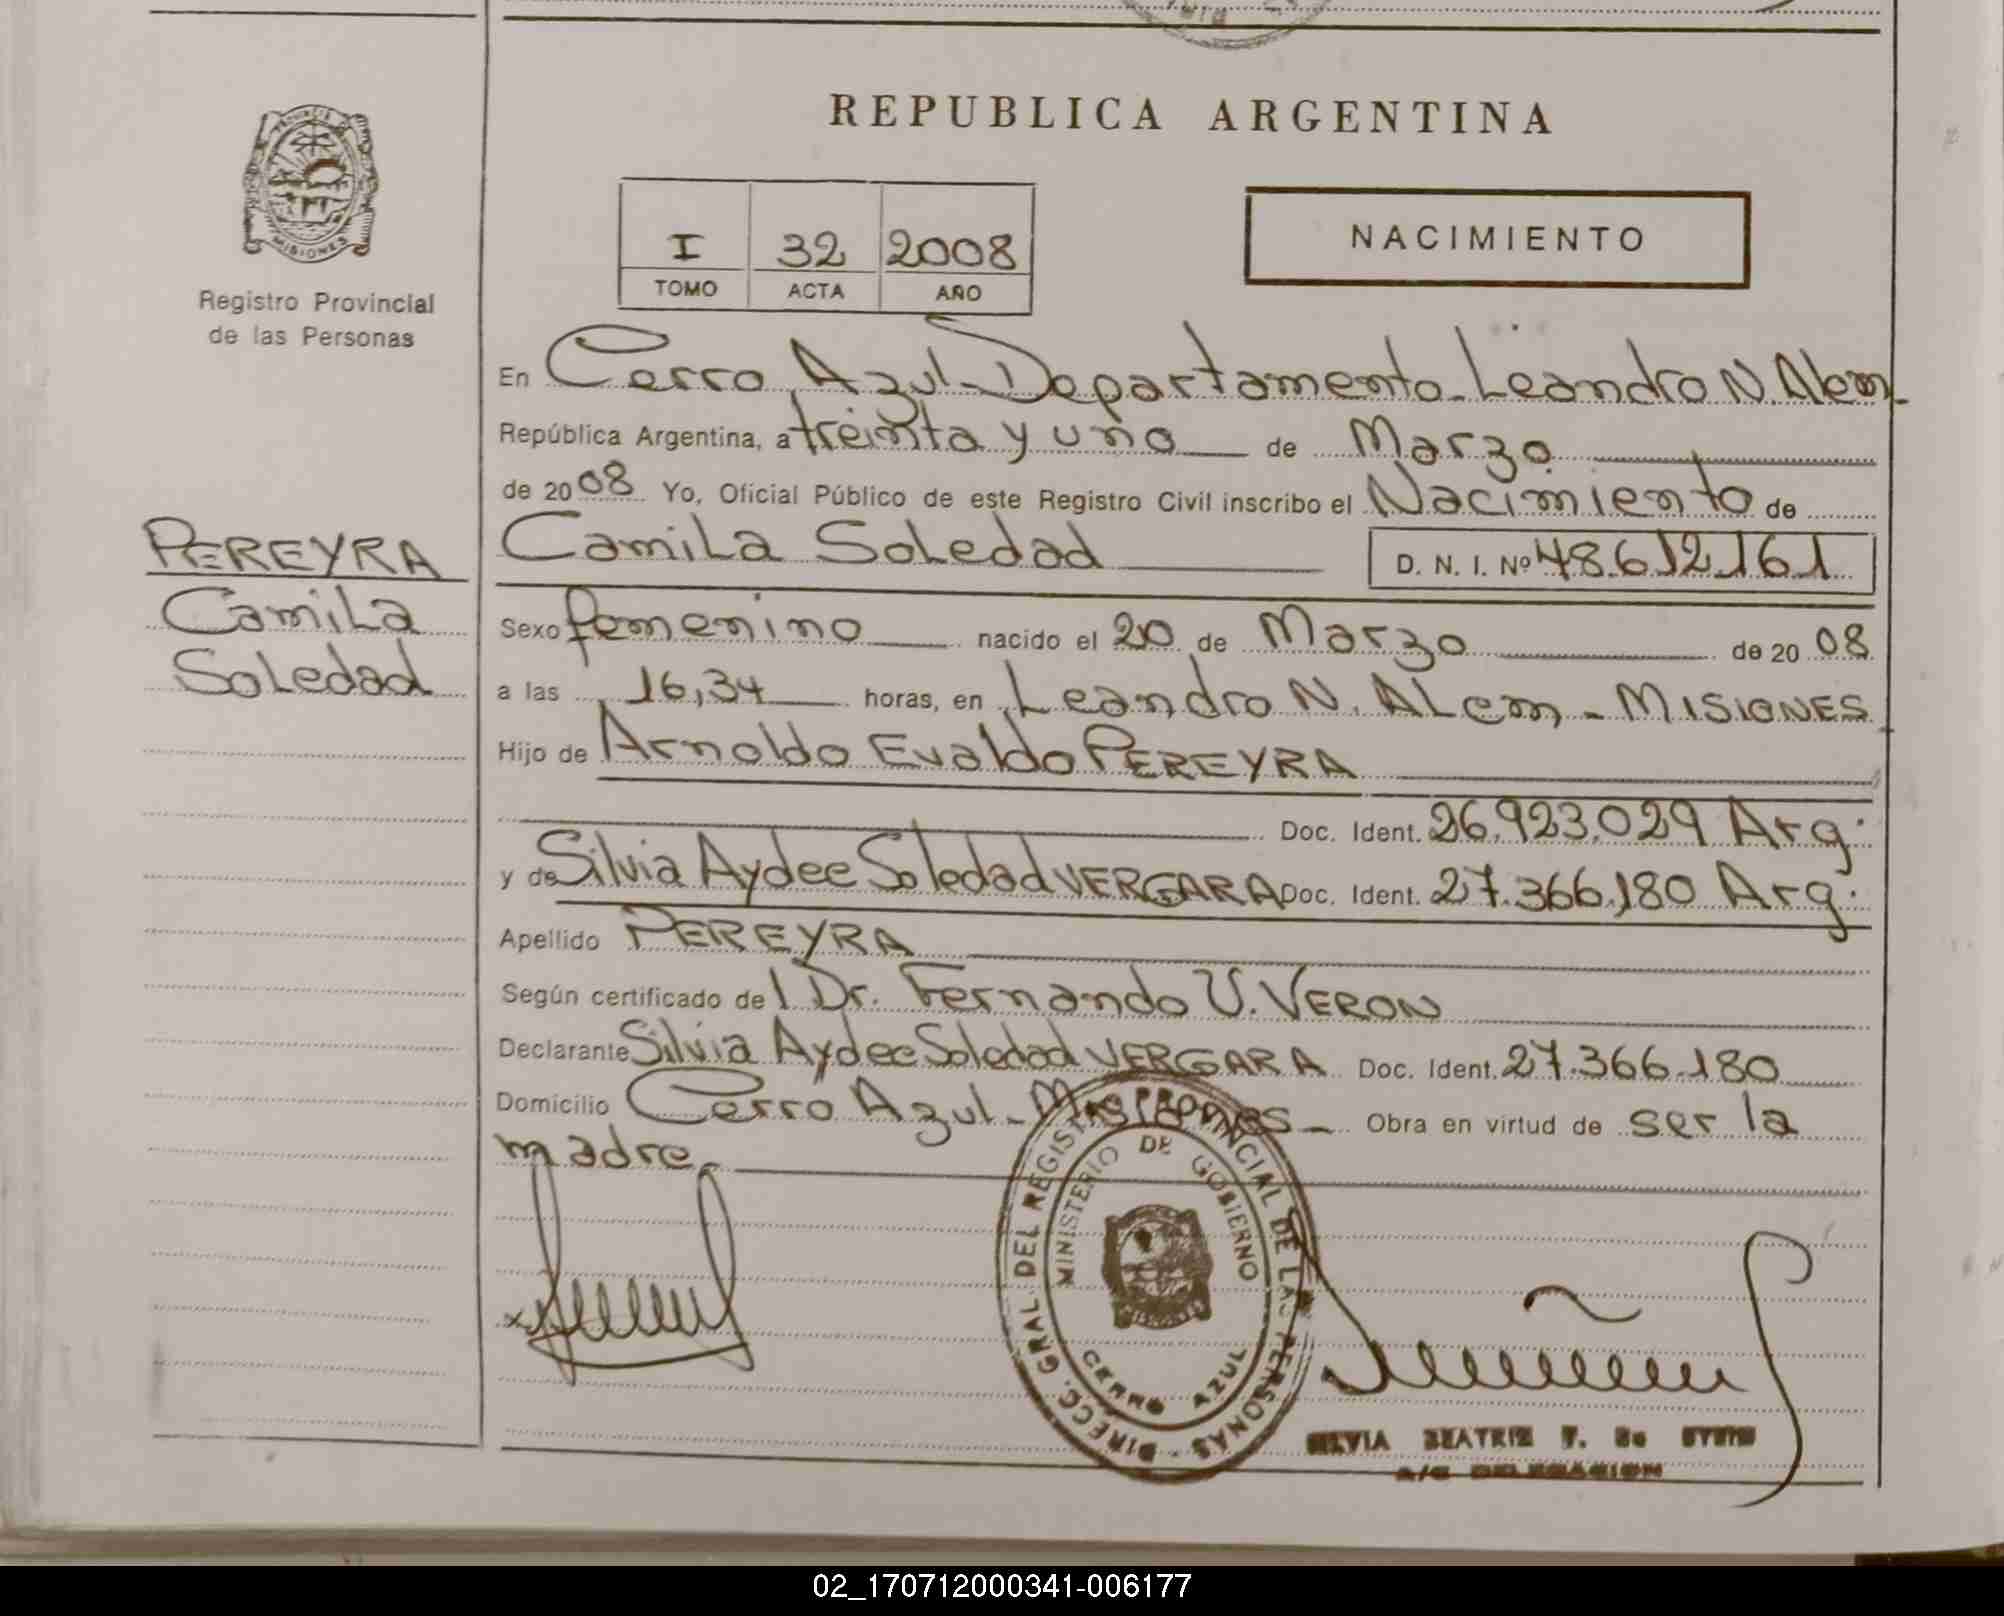 REPUBLICA ARGENTINA
PROVINCIA DE
MISIONES
Registro Provincial
de las Personas
I 32 2008
TOMO ACTA AÑO
NACIMIENTO
En Cerro Azul - Departamento - Leandro N. Alem -
República Argentina, a treinta y uno de Marzo
de 2008 Yo, Oficial Público de este Registro Civil inscribo el Nacimiento de
PEREYRA
Camila
Soledad
Camila Soledad D. N. I. Nº 48.612.161
Sexo femenino nacido el 20 de Marzo de 2008
a las 16,34 horas, en Leandro N. Alem - MISIONES
Hijo de Arnoldo Evaldo PEREYRA
Doc. Ident. 26.923.029 Arg.
y de Silvia Aydee Soledad VERGARA Doc. Ident. 27.366.180 Arg.
Apellido PEREYRA
Según certificado del Dr. Fernando U. VERON
Declarante Silvia Aydee Soledad VERGARA Doc. Ident. 27.366.180
Domicilio Cerro Azul - Misiones - Obra en virtud de ser la
madre.
DIRECC. GRAL. DEL REGISTRO PROVINCIAL DE LAS PERSONAS
MINISTERIO DE GOBIERNO
CERRO AZUL
SILVIA BEATRIZ F. de
A/C DELEGACION
02_170712000341-006177